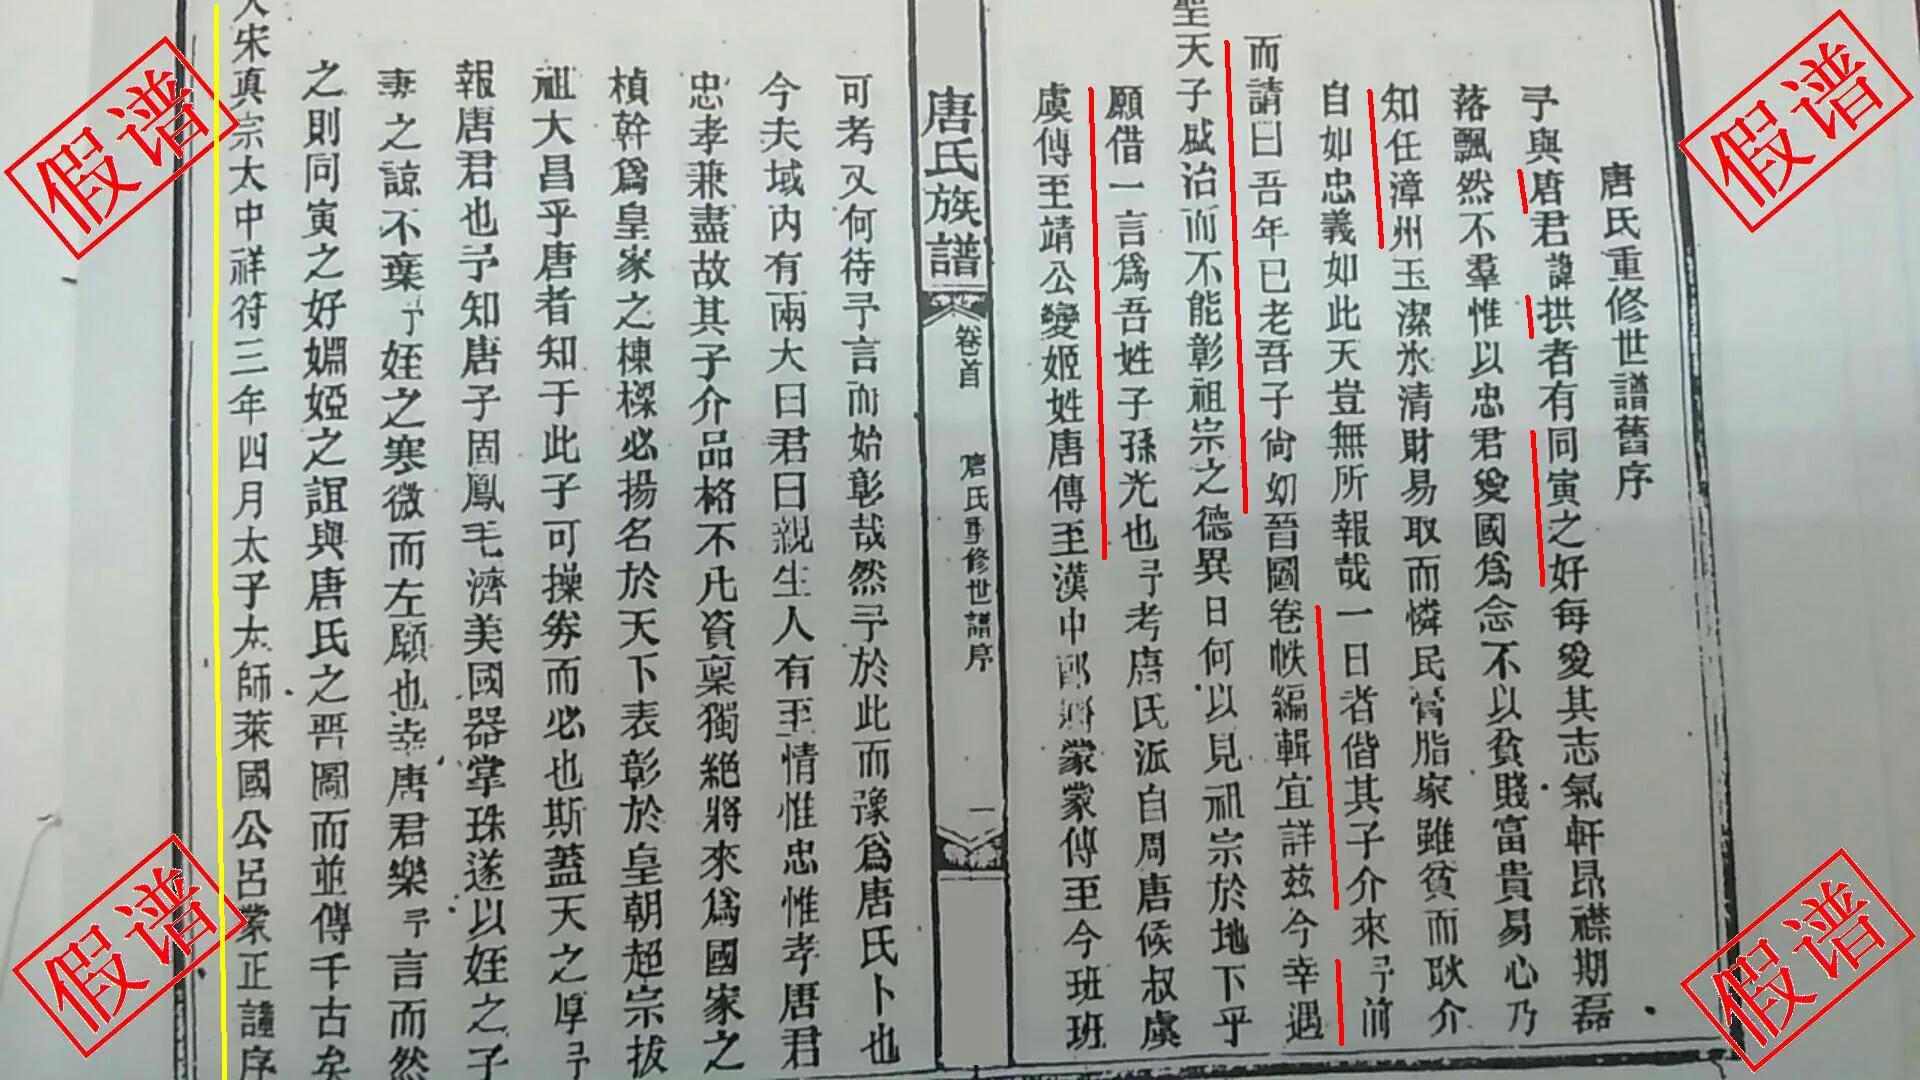 唐氏重修世譜舊序
予與唐君諱拱者有同寅之好每愛其志氣軒昂襟期磊
落飄然不羣惟以忠君愛國為念不以貧賤富貴易心乃
知任漳州玉潔氷清財易取而憐民膏脂家雖貧而耿介
自如忠義如此天豈無所報哉一日者偕其子介來予前
而請曰吾年已老吾子尙幼晉圖卷帙編輯宜詳玆今幸遇
聖天子盛治而不能彰祖宗之德異日何以見祖宗於地下乎
願借一言爲吾姓子孫光也予考唐氏派自周唐候叔虞
虞傳至靖公變姬姓唐傳至漢中郎將蒙蒙傳至今班班
唐氏族譜
卷首
唐氏重修世譜序
一
可考又何待予言而始彰哉然予於此而豫爲唐氏卜也
今夫域内有兩大曰君曰親生人有至情惟忠惟孝唐君
忠孝兼盡故其子介品格不凡資稟獨絕將來爲國家之
楨幹爲皇家之棟樑必揚名於天下表彰於皇朝超宗拔
祖大昌乎唐者知于此子可操券而必也斯蓋天之厚予
報唐君也予知唐子固鳳毛濟美國器掌珠遂以姪之子
妻之諒不棄予姪之寒微而左願也幸唐君樂予言而然
之則同寅之好姻婭之誼與唐氏之晋圖而並傳千古矣
大宋真宗大中祥符三年四月太子太師萊國公呂蒙正謹序
假谱
假谱
假谱
假谱